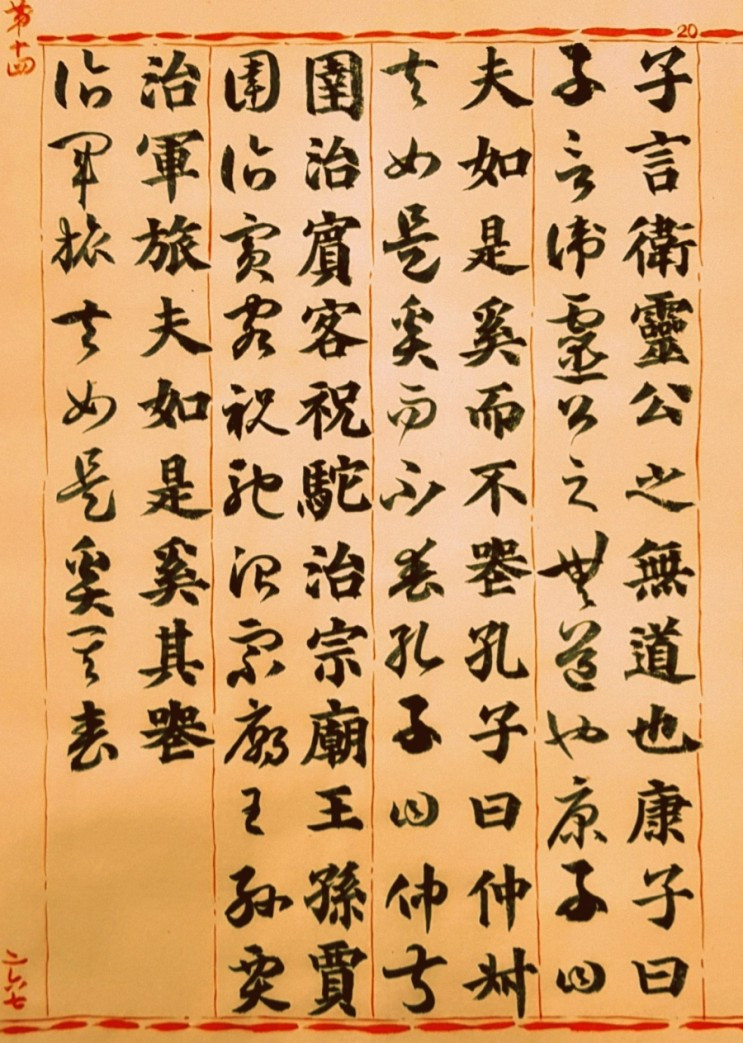 20
子言衛靈公之無道也康子曰
子言衛靈公之無道也康子曰
夫如是奚而不喪孔子曰仲叔
夫如是奚而不喪孔子曰仲叔
圉治賓客祝駝治宗廟王孫賈
圉治賓客祝駝治宗廟王孫賈
治軍旅夫如是奚其喪
治軍旅夫如是奚其喪
第十四
二六七